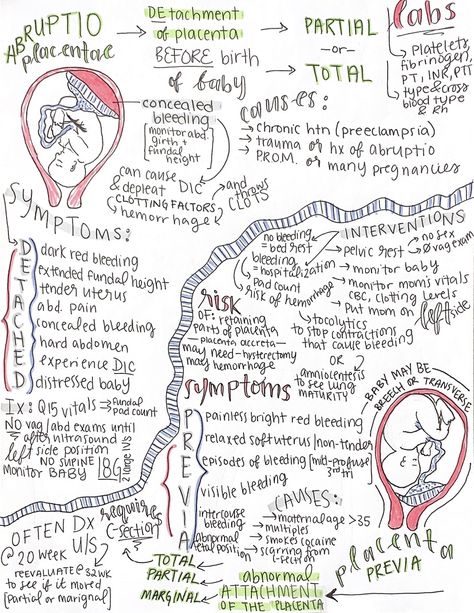 ABRUPTIO
placentae
DEtachment
of placenta
BEFORE birth
of baby
PARTIAL
-or-
TOTAL
labs
platelets
fibrinogen,
PT, INR, PTT
type & cross
blood type
& Rh
concealed
bleeding
monitor abd.
girth +
fundal
height
causes:
chronic htn (preeclampsia)
trauma or hx of abruptio
P.ROM. or many pregnancies
can cause DIC
& depleat
CLOTTING FACTORS
hemorrhage
and
throws
CLOTS
SYMPTOMS:
DETACHED
dark red bleeding
extended fundal height
tender uterus
abd. pain
concealed bleeding
hard abdomen
experience DIC
distressed baby
Ix: Q15 vitals
fundal
pad count
NO vag/abd exams until
after ultrasound
left side position
NO SUPINE
MONITOR BABY
18G
2 large IVs
INTERVENTIONS
no bleeding
= bed rest
pelvic rest
no sex
Ø vag exam
bleeding
= hospitalization
monitor baby
pad count
risk of hemorrhage
monitor mom's vitals
CBC, clotting levels
Put mom on
left side
tocolytics
to stop contractions
that cause bleeding
OR
amniocentesis
to see lung
MATURITY
risk
OF: retaining
parts of placenta
placenta accreta
may need hysterectomy
may hemorrhage
symptoms
PREVIA
painless bright red bleeding
relaxed soft uterus/non-tender
episodes of bleeding
mild-profuse
3rd tri
visible bleeding
intercourse
bleeding
abnormal
fetal position
CAUSES:
maternal age >35
multiples
smokes cocaine
scarring from
C-section
BABY MAY BE
BREECH OR TRANSVERSE
placenta
PREVIA
abnormal
ATTACHMENT
OF THE PLACENTA
TOTAL
PARTIAL
MARGINAL
requires
C-section
OFTEN DX
@ 20 week U/S
REEVALUATE @ 32WK
to see if it moved
[partial or marginal]